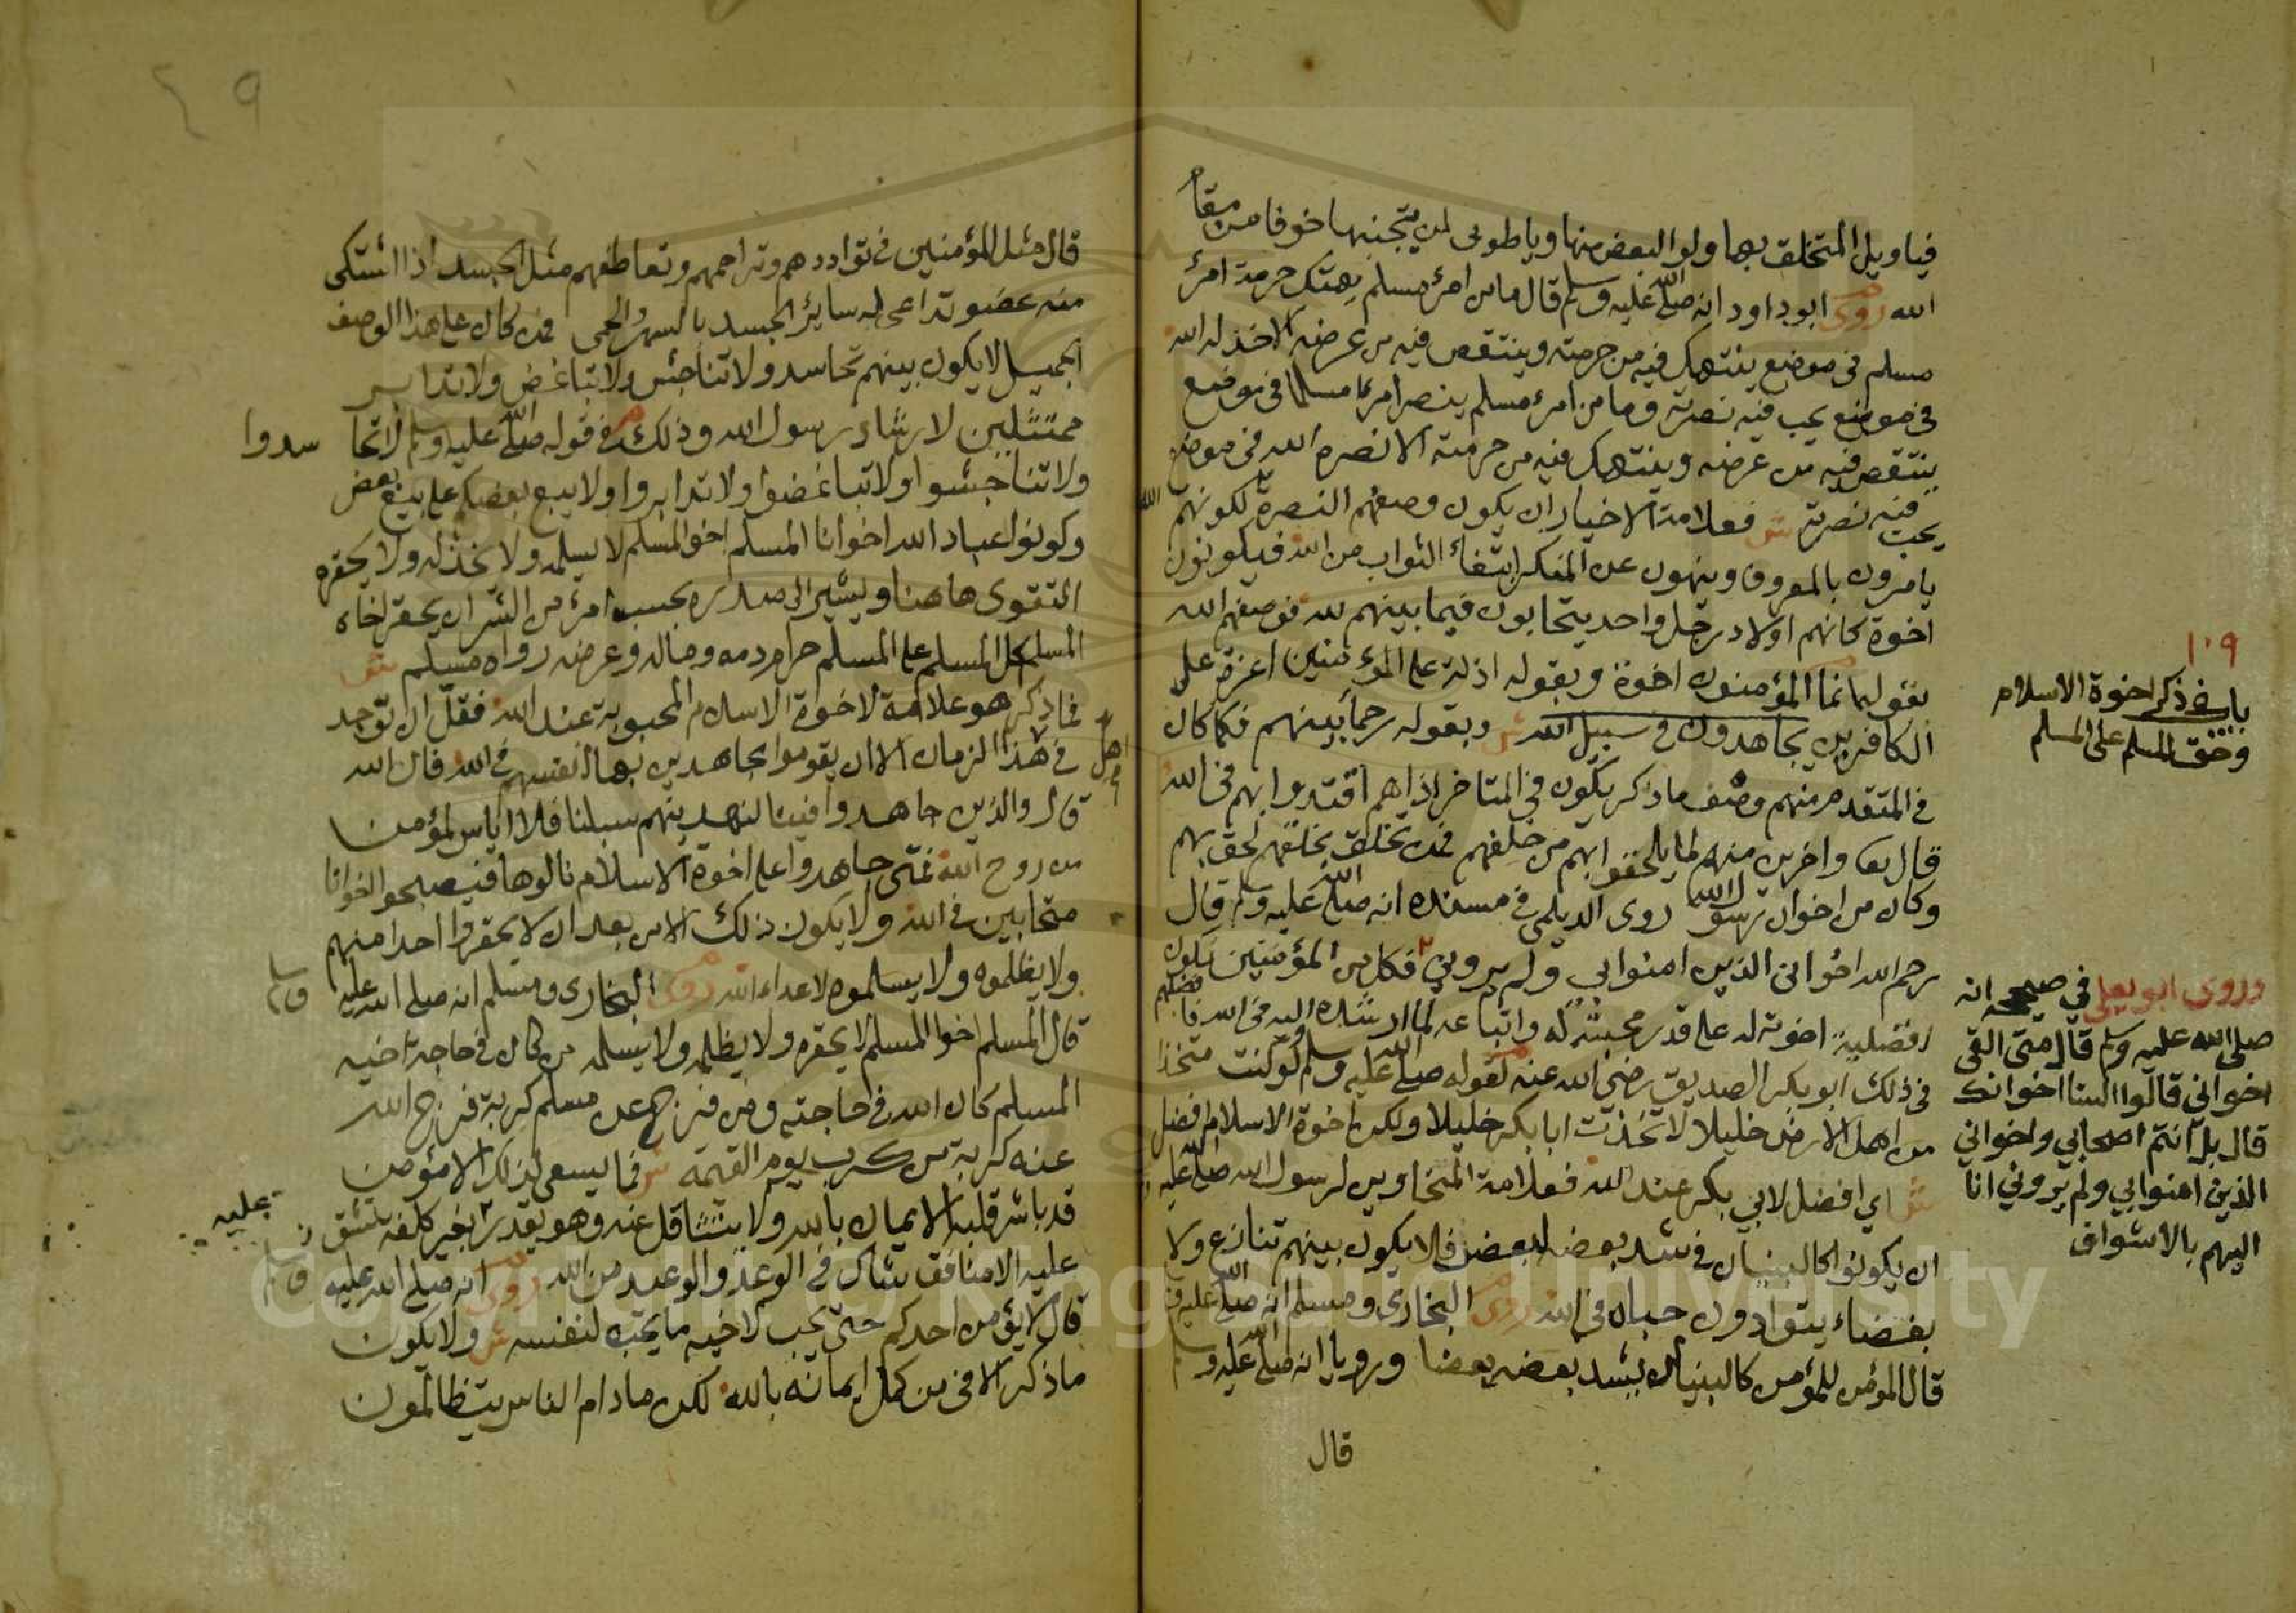 فياويل المتخلق بها ولو البعض منها وياطوبى لمن يتجنبها خوفا من مقام
الله روى ابوداود انه صلى الله عليه وسلم قال ما من امرئ مسلم يهتك حرمة امرئ
مسلم في موضع ينتهك فيه من حرمته وينتقص فيه من عرضه الا خذله الله
في موضع يحب فيه نصرته وما من امرء مسلم ينصر امرءا مسلما في موضع
ينتقص فيه من عرضه وينتهك فيه من حرمته الا نصره الله في موضع
يحب فيه نصرته ش فعلامة الاخيار ان يكون وصفهم النصرة لكونهم
يامرون بالمعروف وينهون عن المنكر ابتغاء الثواب من الله فيكونون
اخوة كانهم اولاد رجل واحد يتحابون فيما بينهم لله فوصفهم الله
بقوله انما المؤمنون اخوة وبقوله اذلة على المؤمنين اعزة على
الكافرين يجاهدون في سبيل الله ش وبقوله رحماء بينهم فكما كان
في المتقدم منهم وصف ما ذكر يكون في المتاخر اذا هم اقتدوا بهم في الله
قال تعا واخرين منهم لما يلحقوا بهم من خلفهم فمن تخلق بخلقهم لحق بهم
وكان من اخوان رسول الله روى الديلمي في مسنده انه صلى الله عليه وسلم قال
رحم الله اخواني الذين امنوا بي ولم يروني فكل من المؤمنين تكون
افضلية اخوته له على قدر محبته له واتباعه لما ارشده اليه في الله فافضلهم
في ذلك ابو بكر الصديق رضي الله عنه لقوله صلى الله عليه وسلم لو كنت متخذا
من اهل الارض خليلا لاتخذت ابا بكر خليلا ولكن اخوة الاسلام افضل
ش اي افضل لابي بكر عند الله فعلامة المتخاوين لرسول الله صلى الله عليه
ان يكونوا كالبنيان في شد بعضه لبعض فلا يكون بينهم تنازع ولا
بغضاء يتوادون حبا في الله روى البخاري ومسلم انه صلى الله عليه وسلم
قال المؤمن للمؤمن كالبنيان يشد بعضه بعضا ورويا انه صلى الله عليه وسلم
قال
١٠٩
باب في ذكر اخوة الاسلام
وحق المسلم على المسلم
وروى ابو يعلى في صحيحه انه
صلى الله عليه وسلم قال متى القى
اخواني قالوا السنا اخوانك
قال بل انتم اصحابي واخواني
الذين امنوا بي ولم يروني انا
اليهم بالاشواق
٤٩
قال مثل المؤمنين في تواددهم وتراحمهم وتعاطفهم مثل الجسد اذا اشتكى
منه عضو تداعى له سائر الجسد بالسهر والحمى فمن كان على هذا الوصف
الجميل لا يكون بينهم تحاسد ولا تناجش ولا تباغض ولا تدابر
ممتثلين لارشاد رسول الله وذلك في قوله صلى الله عليه وسلم لا تحاسدوا
ولا تناجشوا ولا تباغضوا ولا تدابروا ولا يبع بعضكم على بيع بعض
وكونوا عباد الله اخوانا المسلم اخو المسلم لا يسلمه ولا يخذله ولا يحقره
التقوى هاهنا ويشير الى صدره بحسب امرئ من الشر ان يحقر اخاه
المسلم كل المسلم على المسلم حرام دمه وماله وعرضه رواه مسلم ش
فما ذكر هو علامة لاخوة الاسلام المحبوبة عند الله فقل ان توجد
في اهل هذا الزمان الا ان يقوموا مجاهدين بها انفسهم في الله قال الله
قال والذين جاهدوا فينا لنهدينهم سبلنا فلا اياس لمؤمن
من روح الله فمتى جاهدوا على اخوة الاسلام نالوها فيصبحوا اخوانا
متحابين في الله ولا يكون ذلك الا من بعد ان لا يحقروا احدا منهم
ولا يظلموه ولا يسلموه لاعداء الله روى البخاري ومسلم انه صلى الله عليه وسلم
قال المسلم اخوا المسلم لا يحقره ولا يظلمه ولا يسلمه من كان في حاجة اخيه
المسلم كان الله في حاجته ومن فرج عن مسلم كربة فرج الله
عنه كربة من كرب يوم القيمة ش فما يسعى لذلك الا مؤمن
قد باشر قلبه الايمان بالله ولا يتثاقل عنه وهو يقدر بغير كلفة تشق عليه
عليه الا منافق شاك في الوعد والوعيد من الله روى انه صلى الله عليه وسلم
قال لا يؤمن احدكم حتى يحب لاخيه ما يحب لنفسه ش ولا يكون
ما ذكر الا في من كمل ايمانه بالله لكن ما دام الناس يتظالمون
Copyright © King Saud University